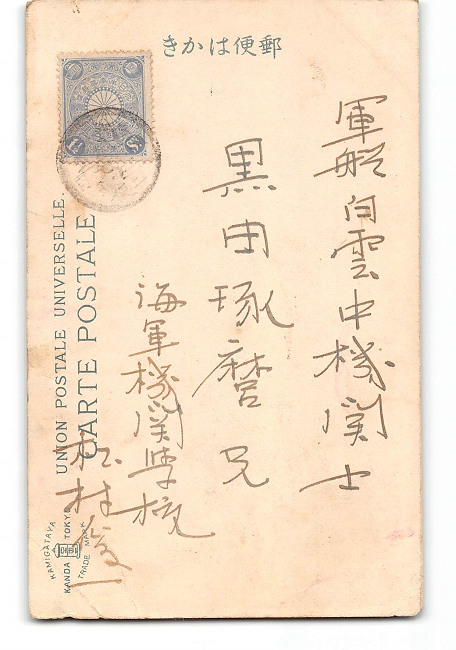 きかは便郵
軍艦白雲中機関士
黒田琢磨兄
海軍機関学校
松村俊一
UNION POSTALE UNIVERSELLE.
CARTE POSTALE
KAMIGATAYA
KANDA TOKYO
TRADE MARK